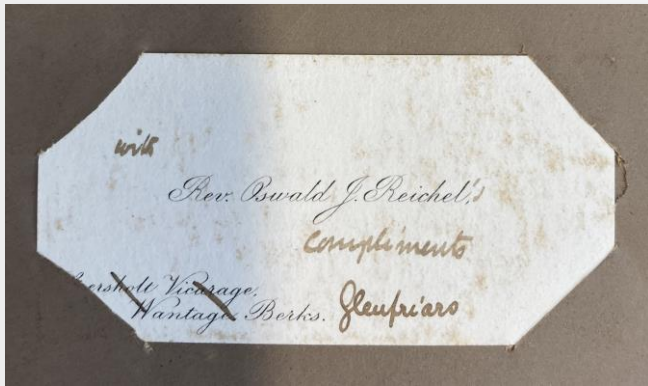 with
Rev. Oswald J. Reichel's
compliments
ersholt Vicarage,
Wantage Berks. Glenfriars